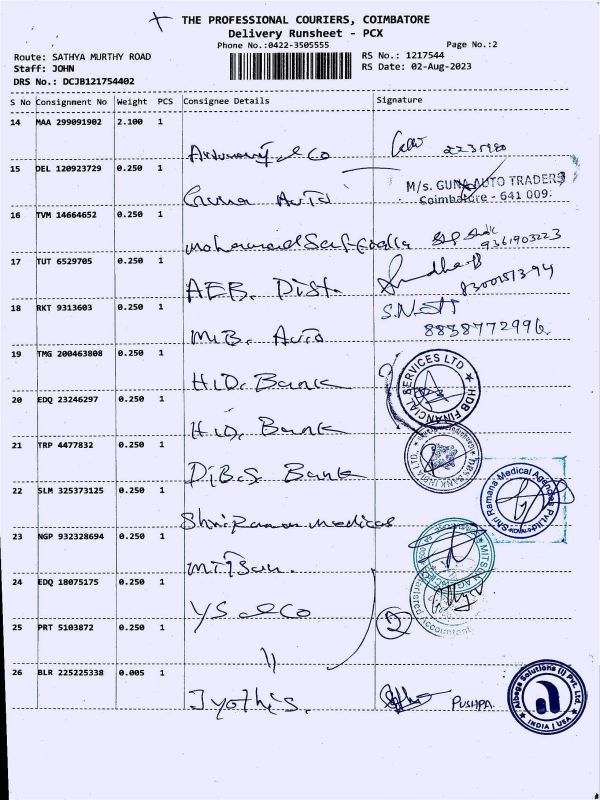 THE PROFESSIONAL COURIERS, COIMBATORE
Delivery Runsheet - PCX
Phone No.:0422-3505555
Page No.:2
Route: SATHYA MURTHY ROAD
RS No.: 1217544
Staff: JOHN
RS Date: 02-Aug-2023
DRS No.: DCJB121754402
S No Consignment No Weight PCS Consignee Details Signature
14 MAA 299091902 2.100 1
& Co
15 DEL 120923729 0.250 1
Guna Auto
M/s. GUNA AUTO TRADERS
Coimbatore - 641 009.
16 TVM 14664652 0.250 1
Mohammed
9361903223
17 TUT 6529705 0.250 1
AEB. Dist.
8300151394
18 RKT 9313603 0.250 1
M.B. Auto
S.N.
8838772996
19 TMG 200463808 0.250 1
H.D. Bank
HDB FINANCIAL SERVICES LTD
20 EDQ 23246297 0.250 1
H.D. Bank
DBS BANK INDIA LTD.
21 TRP 4477832 0.250 1
D.B.S. Bank
22 SLM 325373125 0.250 1
Shri Raman Medical
Shri Ramana Medical Agencies Pvt. Ltd
23 NGP 932328694 0.250 1
24 EDQ 18075175 0.250 1
YS & Co
Chartered Accountants
25 PRT 5103872 0.250 1
"
2
26 BLR 225225338 0.005 1
Jyothis.
PUSHPA
Albega Solutions (I) Pvt. Ltd.
a
INDIA | USA